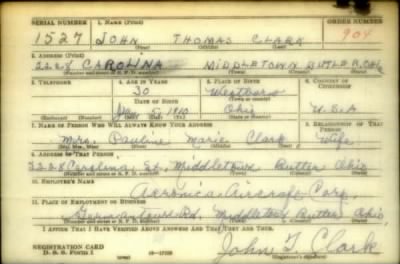 SERIAL NUMBER 1. NAME (Print) ORDER NUMBER
1527 JOHN THOMAS CLARK 904
(First) (Middle) (Last)
2. ADDRESS (Print)
2228 CAROLINA MIDDLETOWN BUTLER, Ohio
(Number and street or R. F. D. number) (Town) (County) (State)
3. TELEPHONE 4. AGE IN YEARS 5. PLACE OF BIRTH 6. COUNTRY OF CITIZENSHIP
30 Westboro
DATE OF BIRTH (Town or county)
Jan. 5, 1910 Ohio U.S.A
(Exchange) (Number) (Mo.) (Day) (Yr.) (State or country)
7. NAME OF PERSON WHO WILL ALWAYS KNOW YOUR ADDRESS 8. RELATIONSHIP OF THAT PERSON
Mrs. Pauline Marie Clark Wife
(Mr., Mrs., Miss) (First) (Middle) (Last)
9. ADDRESS OF THAT PERSON
2228 Carolina, St, Middletown Butler Ohio
(Number and street or R. F. D. number) (Town) (County) (State)
10. EMPLOYER'S NAME
Aeronca Aircraft Corp.
11. PLACE OF EMPLOYMENT OR BUSINESS
Germantown Rd, Middletown Butler Ohio,
(Number and street or R. F. D. number) (Town) (County) (State)
I AFFIRM THAT I HAVE VERIFIED ABOVE ANSWERS AND THAT THEY ARE TRUE.
REGISTRATION CARD
D. S. S. FORM 1 16-17105 John T. Clark
(Registrant's signature)